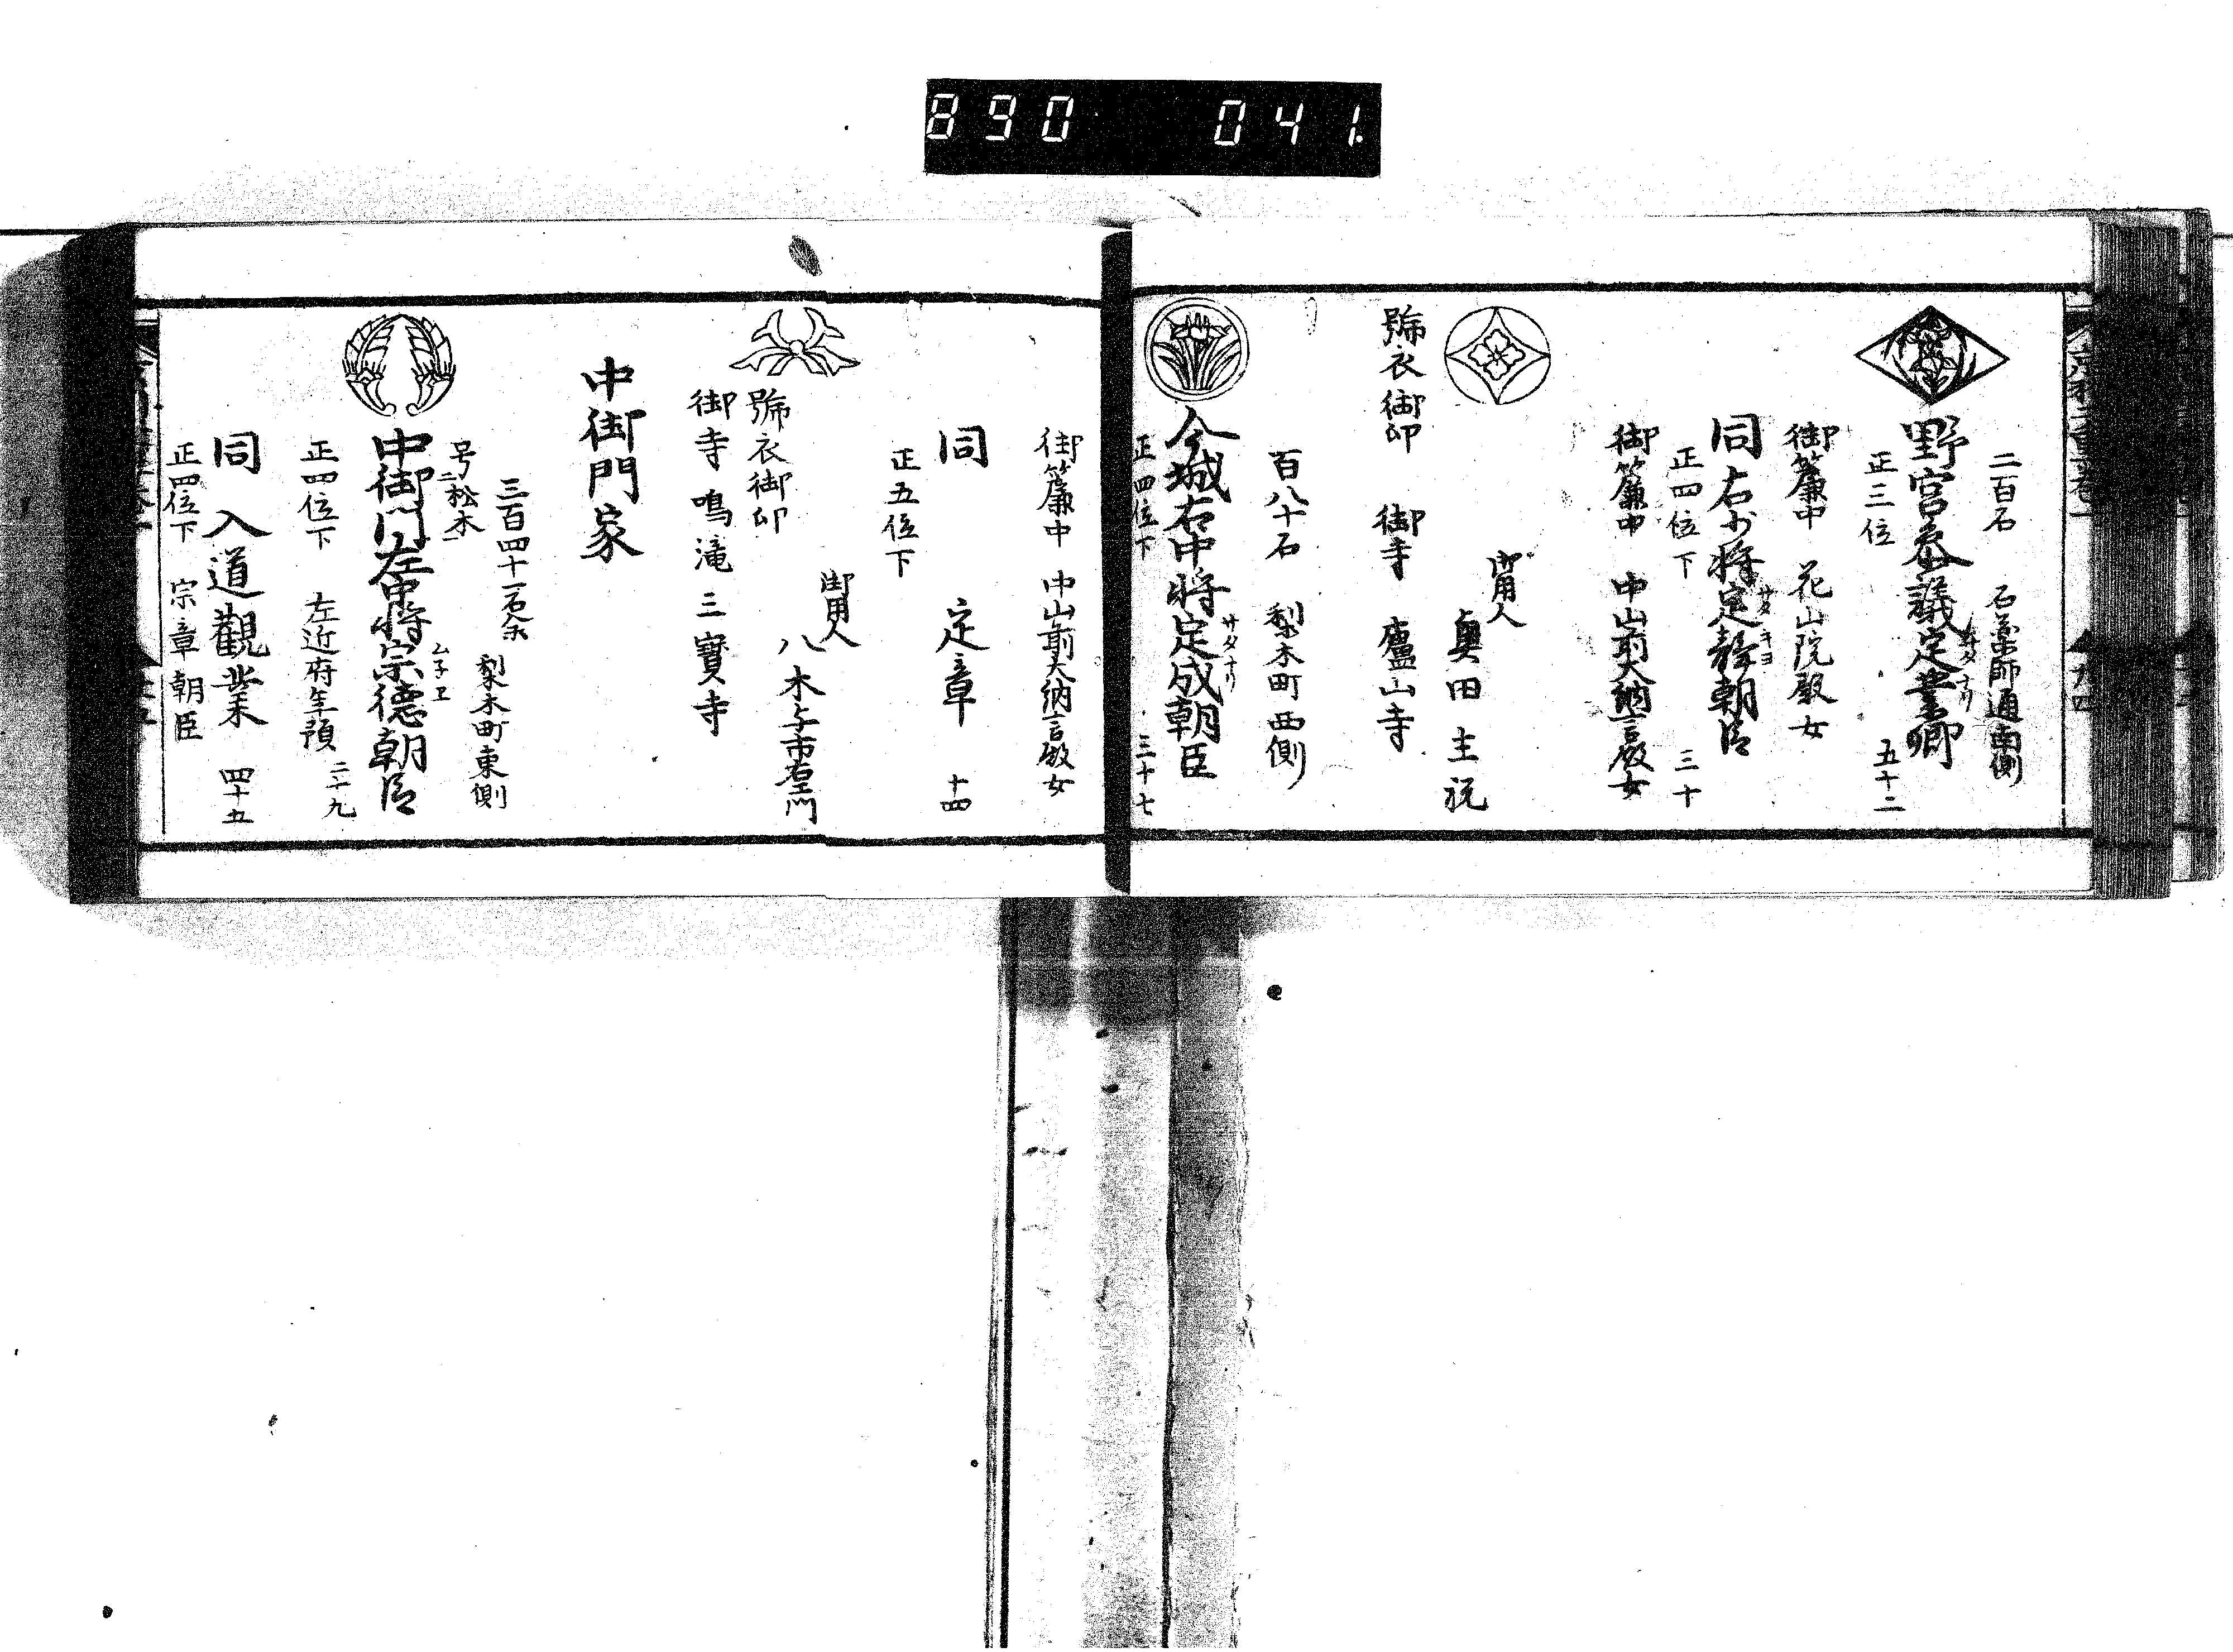 890 041.
二百石 石薬師通南側
野宮参議定業卿 サダナリ
正三位 五十二
御簾中 花山院殿女
同右少将定静朝臣 サダキヨ
正四位下 三十
御簾中 中山前大納言殿女
御用人
奥田主祝
號衣御印 御寺 廬山寺
百八十石 梨木町西側
今城右中将定成朝臣 サダナリ
正四位下 三十七
御簾中 中山前大納言殿女
同 定章 十四
正五位下
御用人
八木与市右衛門
號衣御印
御寺 鳴滝三寳寺
中御門家
三百四十一石余 梨木町東側
号二松木一
中御門左中将宗徳朝臣
正四位下 左近府年預 二十九
同入道觀業 四十五
正四位下 宗章朝臣